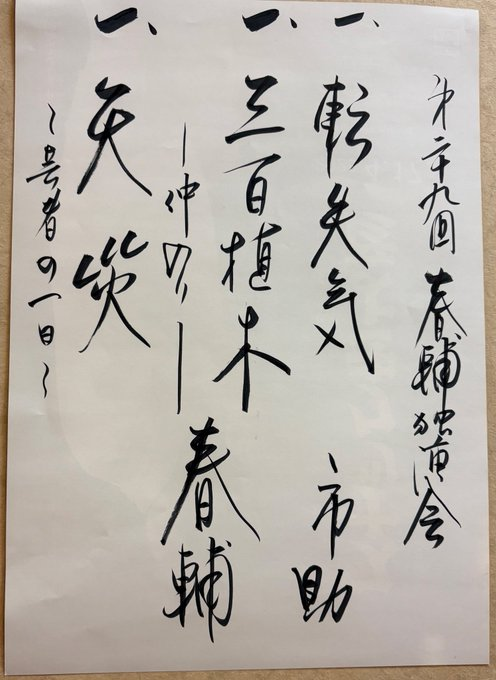 第二十九回 春輔独演会
一、転失気 市助
一、三百植木
―仲のり―
春輔
一、天災
〜芸者の一日〜